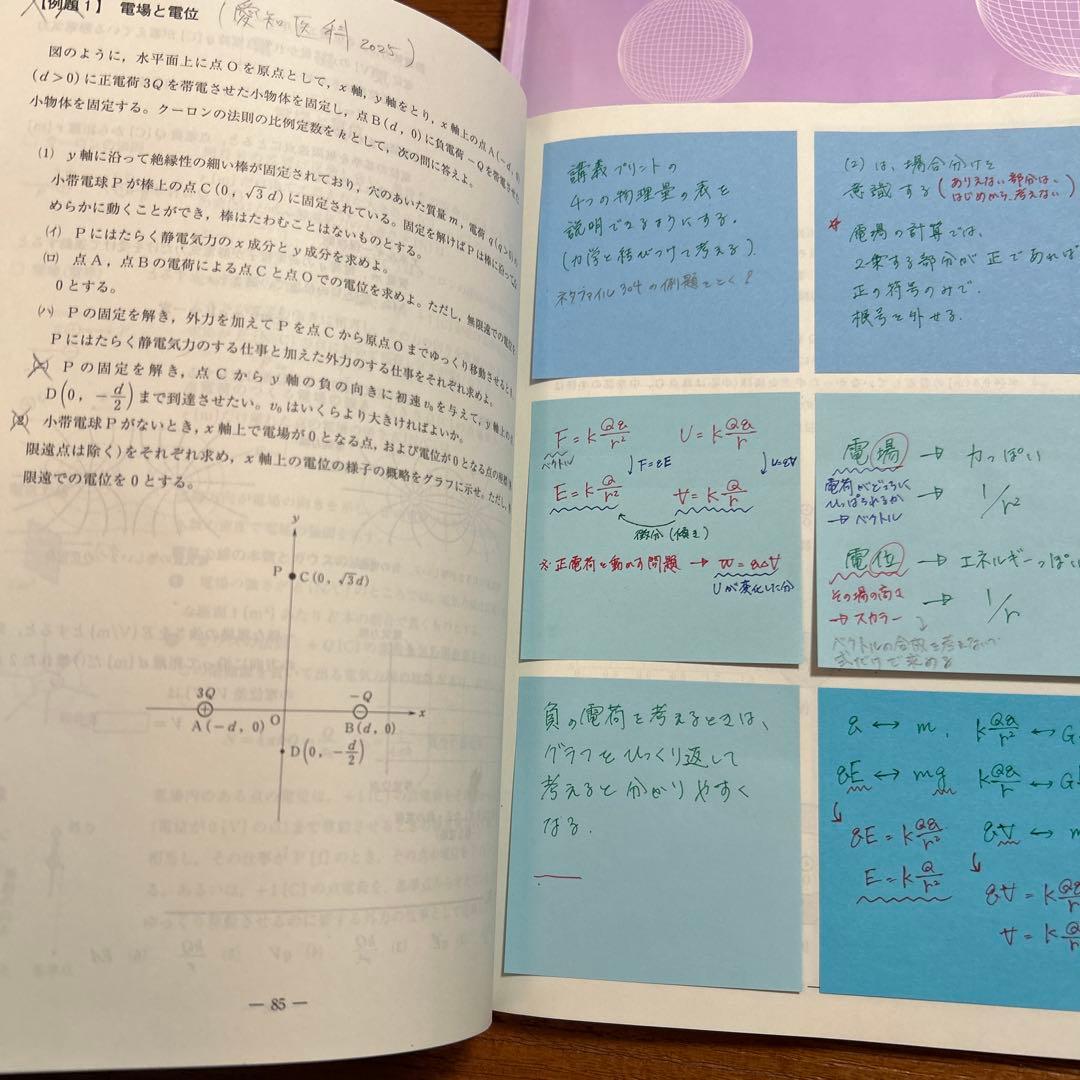 【例題1】 電場と電位 (愛知医科 2025)
図のように，水平面上に点Oを原点として，x軸，y軸をとり，x軸上の点A(−d, 0)
(d>0)に正電荷3Qを帯電させた小物体を固定し，点B(d, 0)に負電荷−Qを帯電させた
小物体を固定する。クーロンの法則の比例定数をkとして，次の問に答えよ。
(1) y軸に沿って絶縁性の細い棒が固定されており，穴のあいた質量m，電荷q(q>0)の
小帯電球Pが棒上の点C(0, √3d)に固定されている。固定を解けばPは棒に沿って
めらかに動くことができ，棒はたわむことはないものとする。
(イ) Pにはたらく静電気力のx成分とy成分を求めよ。
(ロ) 点A，点Bの電荷による点Cと点Oでの電位を求めよ。ただし，無限遠での電位を
0とする。
(ハ) Pの固定を解き，外力を加えてPを点Cから原点Oまでゆっくり移動させるとき，
Pにはたらく静電気力のする仕事と加えた外力のする仕事をそれぞれ求めよ。
Pの固定を解き，点Cからy軸の負の向きに初速v₀を与えて，y軸上の
D(0, −d/2)まで到達させたい。v₀はいくらより大きければよいか。
(2) 小帯電球Pがないとき，x軸上で電場が0となる点，および電位が0となる点の
限遠点は除く)をそれぞれ求め，x軸上の電位の様子の概略をグラフに示せ。ただし，
限遠での電位を0とする。
y
P C(0, √3d)
3Q −Q
O x
A(−d, 0) B(d, 0)
D(0, −d/2)
— 85 —
講義プリントの
4つの物理量の表を
説明できるようにする.
(力学と結びつけて考える).
ネクファイル304の例題をとく?
(2)は、場合分けを
意識する(ありえない部分は、
はじめから、考えない)
* 電場の計算では、
2乗する部分が正であれば
正の符号のみで.
根号を外せる.
F=kQq/r² U=kQq/r
ベクトル ↓F=qE ↓U=qV
E=kQ/r² V=kQ/r
微分(傾き)
※正電荷を動かす問題 → W=qΔV
Uが変化した分
電場 → 力っぽい
電荷がどちらに
ひっぱられるか → 1/r²
→ベクトル
電位 → エネルギーっぽい
その場の高さ → 1/r
→スカラー
ベクトルの合成を考えないで
式だけで求める
負の電荷を考えるときは、
グラフをひっくり返して
考えると分かりやすく
なる.
q ↔ m, kQq/r² ↔ G
qE ↔ mg kQq/r ↔ G
qE=kQq/r² qV ↔ m
E=kQ/r² qV=kQq/r
V=kQ/r